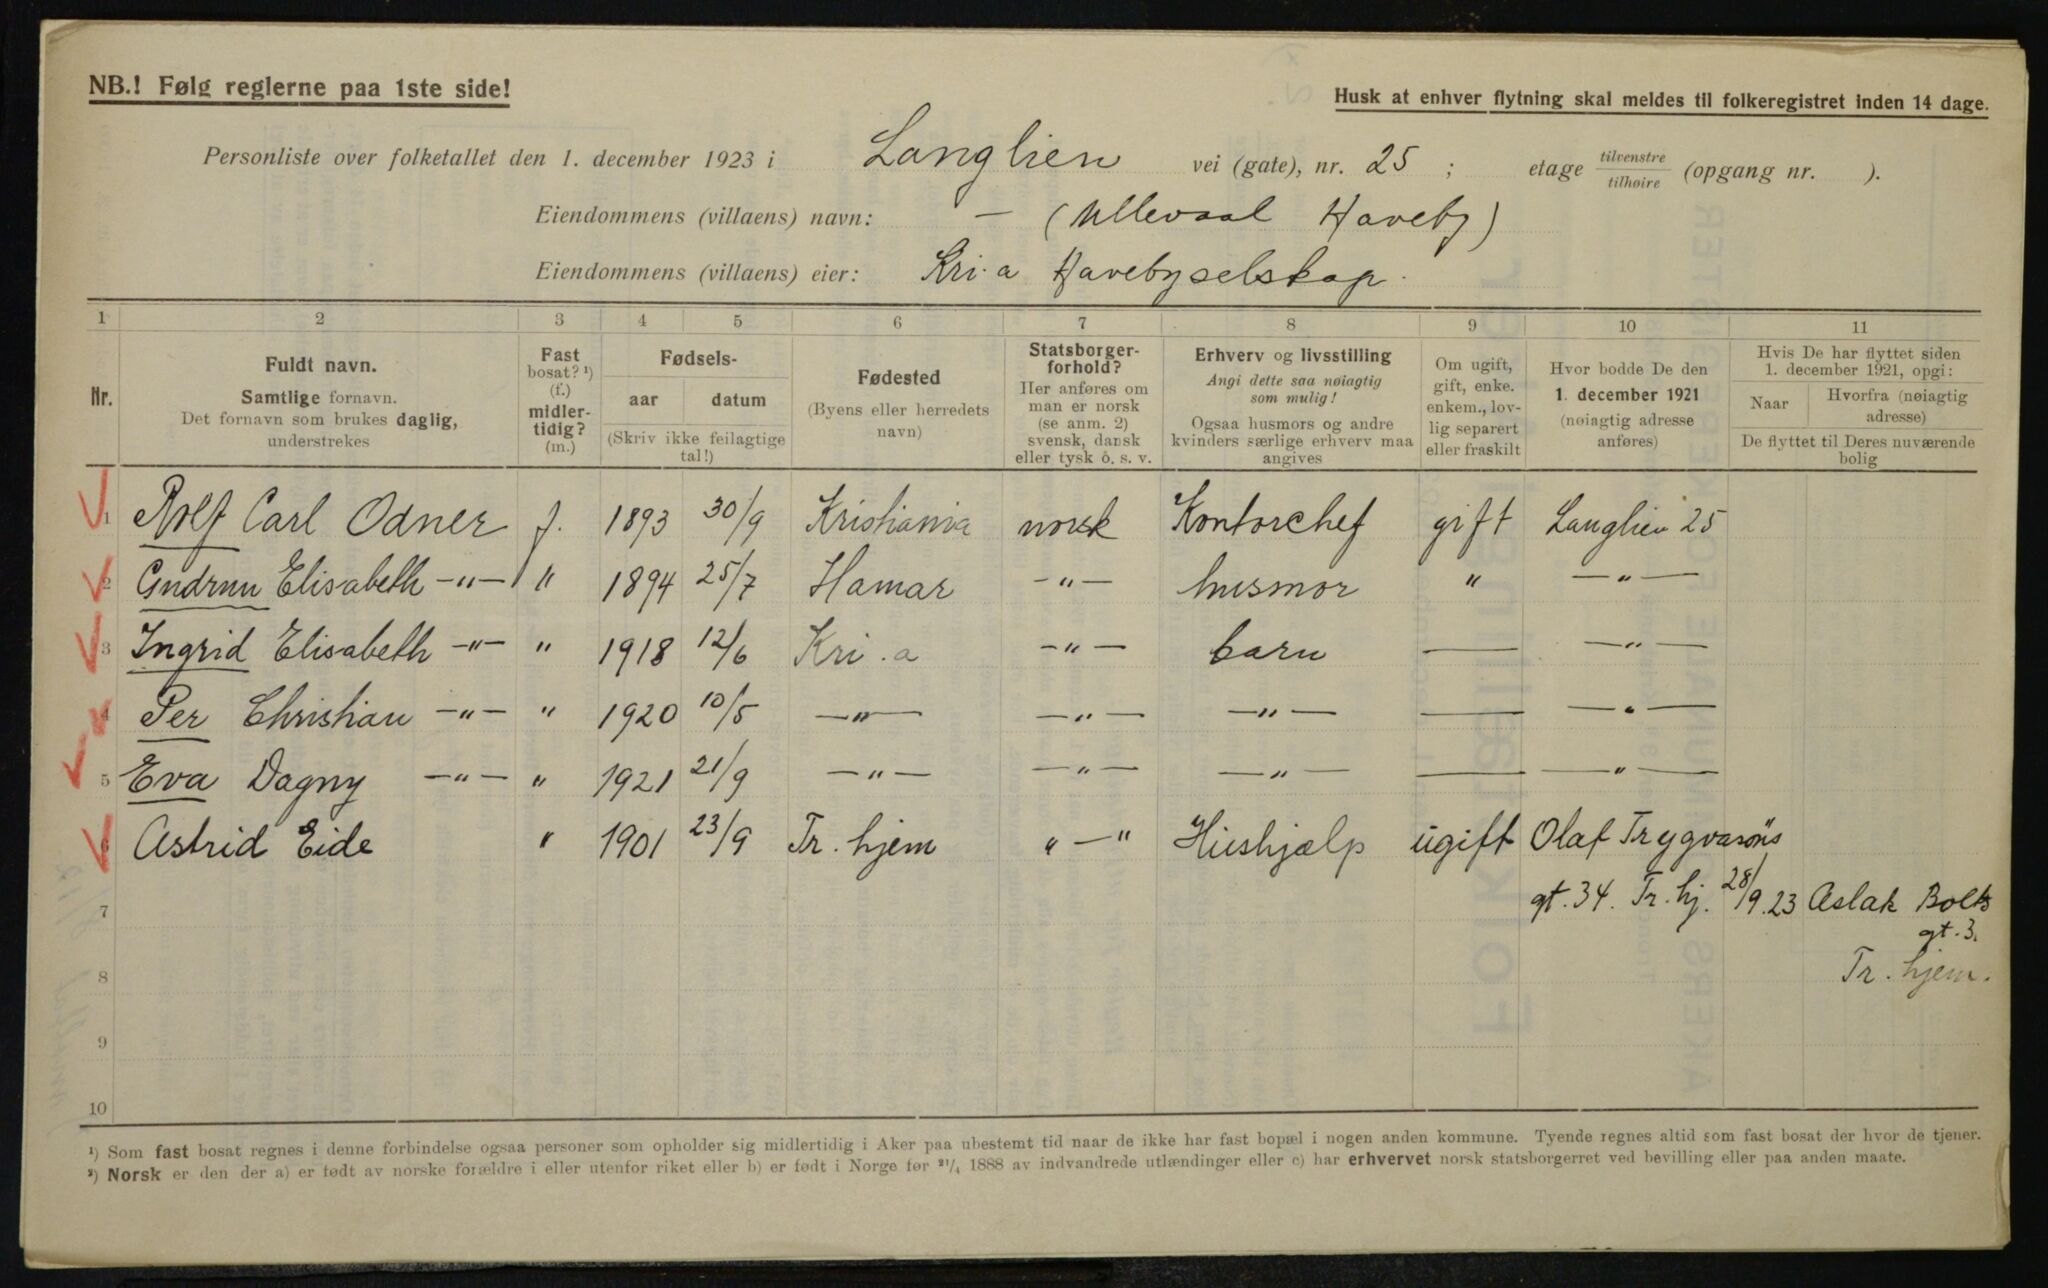 NB.! Følg reglerne paa 1ste side!
Husk at enhver flytning skal meldes til folkeregistret inden 14 dage.
Personliste over folketallet den 1. december 1923 i Langlien vei (gate), nr. 25 ; etage tilvenstre/tilhøire (opgang nr. ).
Eiendommens (villaens) navn: — (Ullevaal Haveby)
Eiendommens (villaens) eier: Kri.a Havebyselskap.
1 2 3 4 5 6 7 8 9 10 11
Nr.
Fuldt navn.
Samtlige fornavn.
Det fornavn som brukes daglig,
understrekes
Fast
bosat? ¹)
(f.)
midler-
tidig?
(m.)
Fødsels-
aar datum
(Skriv ikke feilagtige
tal!)
Fødested
(Byens eller herredets
navn)
Statsborger-
forhold?
Her anføres om
man er norsk
(se anm. 2)
svensk, dansk
eller tysk o. s. v.
Erhverv og livsstilling
Angi dette saa nøiagtig
som mulig!
Ogsaa husmors og andre
kvinders særlige erhverv maa
angives
Om ugift,
gift, enke.
enkem., lov-
lig separert
eller fraskilt
Hvor bodde De den
1. december 1921
(nøiagtig adresse
anføres)
Hvis De har flyttet siden
1. december 1921, opgi:
Naar
Hvorfra (nøiagtig
adresse)
De flyttet til Deres nuværende
bolig
1 Rolf Carl Odner f. 1893 30/9 Kristiania norsk Kontorchef gift Langlien 25
2 Gudrun Elisabeth —"— " 1894 25/7 Hamar —"— husmor " —"—
3 Ingrid Elisabeth —"— " 1918 12/6 Kri.a —"— barn — —"—
4 Per Christian —"— " 1920 10/5 —"— —"— —"— — —"—
5 Eva Dagny —"— " 1921 21/9 —"— —"— —"— — —"—
6 Astrid Eide " 1901 23/9 Tr.hjem "—" Hushjælp ugift Olaf Trygvasöns
7 gt. 34. Tr.hj. 28/9.23 Aslak Bolts
gt. 3.
8 Tr.hjem.
9
10
¹) Som fast bosat regnes i denne forbindelse ogsaa personer som opholder sig midlertidig i Aker paa ubestemt tid naar de ikke har fast bopæl i nogen anden kommune. Tyende regnes altid som fast bosat der hvor de tjener.
²) Norsk er den der a) er født av norske forældre i eller utenfor riket eller b) er født i Norge før 21/4 1888 av indvandrede utlændinger eller c) har erhvervet norsk statsborgerret ved bevilling eller paa anden maate.